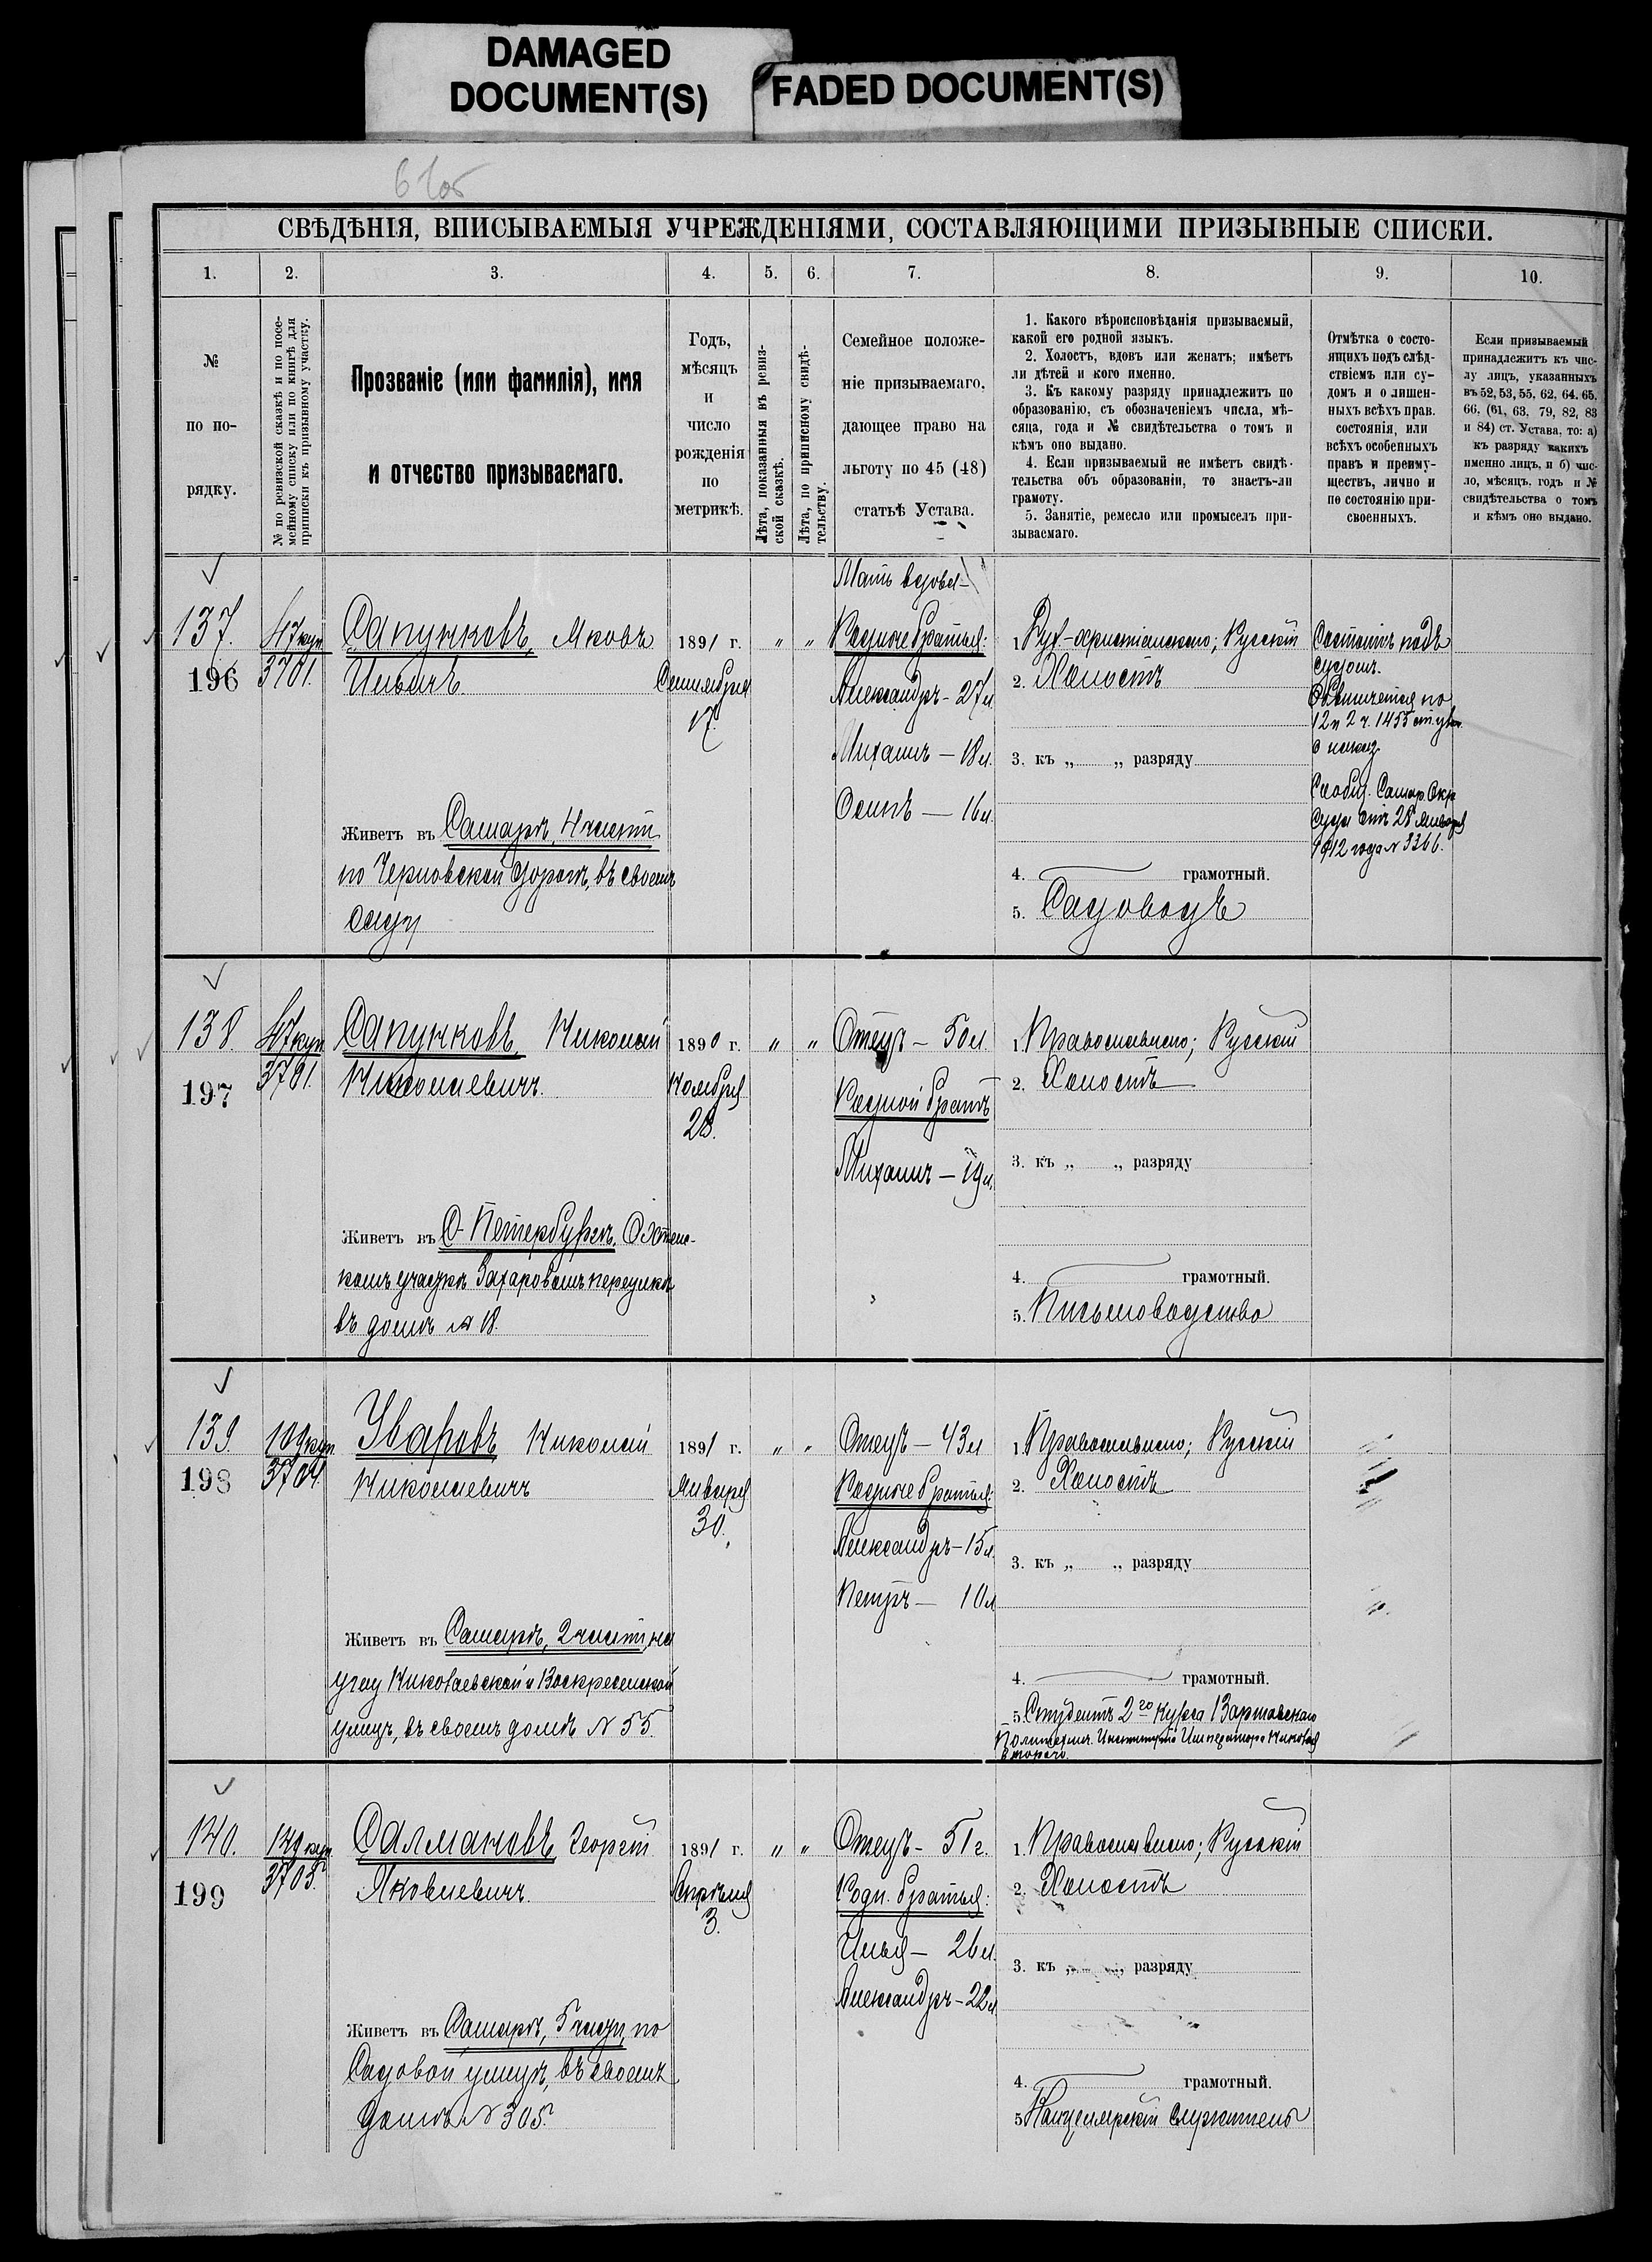 DAMAGED
DOCUMENT(S)
FADED DOCUMENT(S)
СВѢДѢНІЯ, ВПИСЫВАЕМЫЯ УЧРЕЖДЕНІЯМИ, СОСТАВЛЯЮЩИМИ ПРИЗЫВНЫЕ СПИСКИ.
1. 2. 3. 4. 5. 6. 7. 8. 9. 10.
№
по по-
рядку.
№ по ревизской сказкѣ и по посе-
мейному списку или по книгѣ для
приписки къ призывному участку.
Прозваніе (или фамилія), имя
и отчество призываемаго.
Годъ,
мѣсяцъ
и
число
рожденія
по
метрикѣ.
Лѣта, показанныя въ ревиз-
ской сказкѣ.
Лѣта, по приписному свидѣ-
тельству.
Семейное положе-
ніе призываемаго,
дающее право на
льготу по 45 (48)
статьѣ Устава.
1. Какого вѣроисповѣданія призываемый,
какой его родной языкъ.
2. Холостъ, вдовъ или женатъ; имѣетъ
ли дѣтей и кого именно.
3. Къ какому разряду принадлежитъ по
образованію, съ обозначеніемъ числа, мѣ-
сяца, года и № свидѣтельства о томъ и
кѣмъ оно выдано.
4. Если призываемый не имѣетъ свидѣ-
тельства объ образованіи, то знаетъ-ли
грамоту.
5. Занятіе, ремесло или промыселъ при-
зываемаго.
Отмѣтка о состо-
ящихъ подъ слѣд-
ствіемъ или су-
домъ и о лишен-
ныхъ всѣхъ прав.
состоянія, или
всѣхъ особенныхъ
правъ и преиму-
ществъ, лично и
по состоянію при-
своенныхъ.
Если призываемый
принадлежитъ къ чис-
лу лицъ, указанныхъ
въ 52, 53, 55, 62, 64, 65,
66, (61, 63, 79, 82, 83
и 84) ст. Устава, то: а)
къ разряду какихъ
именно лицъ, и б) чис-
ло, мѣсяцъ, годъ и №
свидѣтельства о томъ
и кѣмъ оно выдано.
137.
196
47 куп.
3701.
Сапунковъ, Яковъ
Ильичъ.
Живетъ въ Самарѣ, 4 части
по Черновской дорогѣ, въ своемъ
саду
1891 г.
Сентября
17.
" "
Мать вдова
Родные братья:
Александръ - 27 л.
Михаилъ — 18 л.
Осипъ — 16 л.
1. Русскій
2. Холостъ
3. къ „ „ разряду
4. грамотный.
5. Садоводъ
Состоитъ подъ
судомъ.
Обвиняется по
12 п 2 ч. 1455 ст. улож.
о наказ.
Сообщ. Самар. Окр.
Суда отъ 28 января
1912 года № 3366.
138.
197
47 куп.
3701.
Сапунковъ, Николай
Николаевичъ.
Живетъ въ С-Петербургѣ, Охтенс-
комъ участкѣ Захаровомъ переулкѣ
въ домѣ № 18.
1890 г.
Ноября
28.
" "
Отецъ - 50 л.
Родной братъ
Михаилъ — 19 л.
1. Православного; Русскій
2. Холостъ
3. къ „ „ разряду
4. грамотный.
5. Письмоводство
139.
198
109 куп.
3704.
Уваровъ, Николай
Николаевичъ
Живетъ въ Самарѣ, 2 части, на
углу Николаевской и Воскресенской
улицъ, въ своемъ домѣ № 55.
1891 г.
Января
30.
" "
Отецъ — 43 л.
Родные братья:
Александръ — 15 л.
Петръ — 10 л.
1. Православного; Русскій
2. Холостъ
3. къ „ „ разряду
4. грамотный.
5. Студентъ 2го курса Варшавскаго
Политехнич. Института Императора Николая
Второго.
140.
199
149 куп.
3705.
Салмановъ, Георгій
Яковлевичъ.
Живетъ въ Самарѣ, 5 части, по
Садовой улицѣ, въ своемъ
домѣ № 305.
1891 г.
Апрѣля
3.
" "
Отецъ - 51 г.
Родн. братья:
Илья — 26 л.
Александръ — 22 л.
1. Православного; Русскій
2. Холостъ
3. къ „ „ разряду
4. грамотный.
5. Канцелярскій служитель